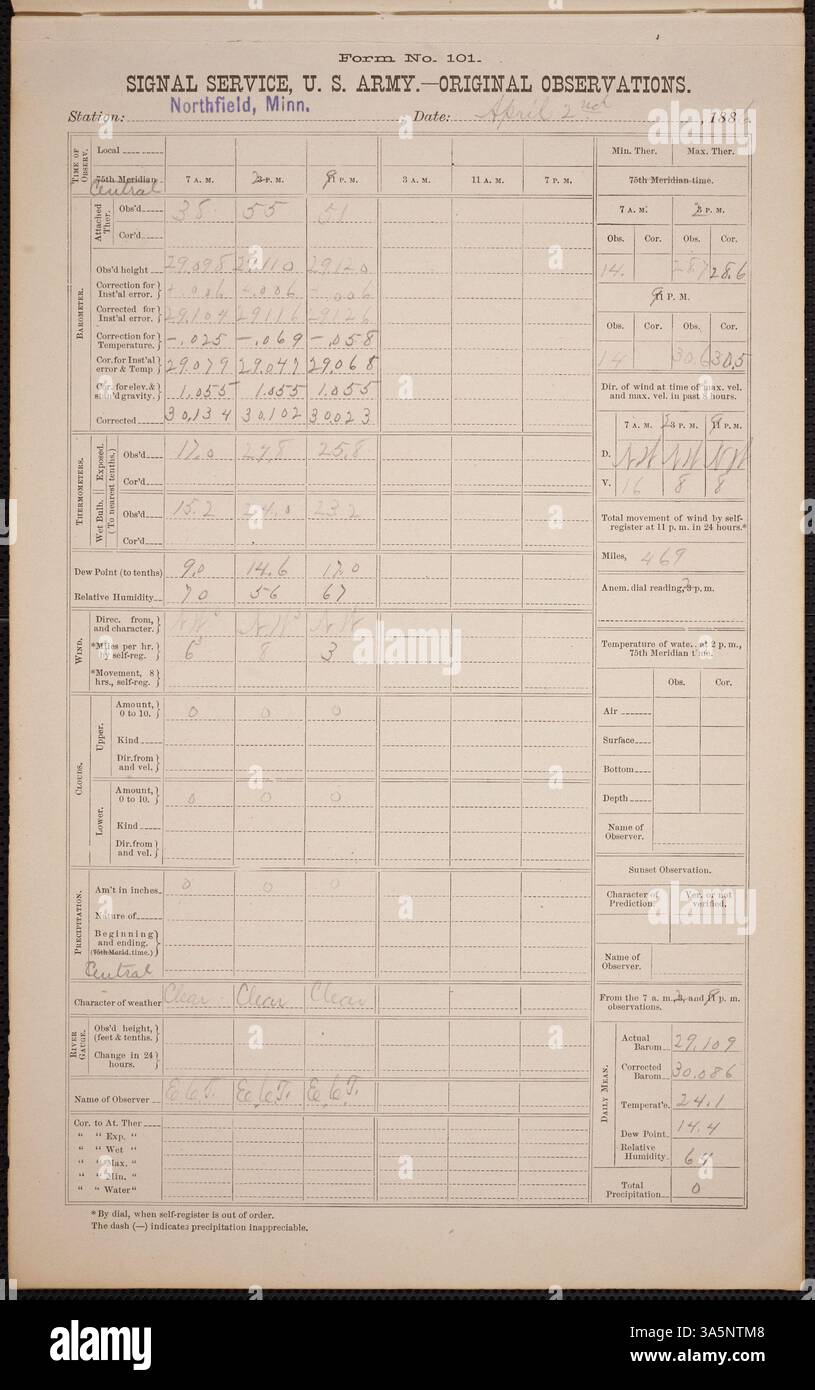 Form No. 101.
SIGNAL SERVICE, U. S. ARMY.—ORIGINAL OBSERVATIONS.
Station: Northfield, Minn. Date: April 2nd, 188
TIME OF OBSERV. Local
75th Meridian Central 7 A. M. 3 P. M. 11 P. M. 3 A. M. 11 A. M. 7 P. M.
BAROMETER.
Attached Ther. Obs'd 38 55 51
Cor'd
Obs'd height 29.098 29.110 29.120
Correction for Inst'al error. +.006 +.006 .006
Corrected for Inst'al error. 29.104 29.116 29.126
Correction for Temperature. -.025 -.069 -.058
Cor. for Inst'al error & Temp 29.079 29.047 29.068
Cor. for elev. & stan'd gravity. 1.055 1.055 1.055
Corrected 30.134 30.102 30.023
THERMOMETERS.
Exposed. (To nearest tenths.) Obs'd 17.0 27.8 25.8
Cor'd
Wet Bulb. Obs'd 15.2 24.0 23.2
Cor'd
Dew Point (to tenths) 9.0 14.6 17.0
Relative Humidity 70 56 67
WIND.
Direc. from, and character. NW NW NW
*Miles per hr. by self-reg. 6 8 3
*Movement, 8 hrs., self-reg.
CLOUDS.
Upper. Amount, 0 to 10. 0 0 0
Kind
Dir. from and vel.
Lower. Amount, 0 to 10. 0 0 0
Kind
Dir. from and vel.
PRECIPITATION.
Am't in inches 0 0 0
Nature of
Beginning and ending. (75th Merid. time.)
Central
Character of weather Clear Clear Clear
RIVER GAUGE.
Obs'd height, (feet & tenths.
Change in 24 hours.
Name of Observer
Cor. to At. Ther
" " Exp. "
" " Wet "
" " Max. "
" " Min. "
" " Water "
*By dial, when self-register is out of order.
The dash (—) indicates precipitation inappreciable.
Min. Ther. Max. Ther.
75th Meridian time.
7 A. M. 3 P. M.
Obs. Cor. Obs. Cor.
14. 28.7 28.6
11 P. M.
Obs. Cor. Obs. Cor.
14 30.6 30.5
Dir. of wind at time of max. vel. and max. vel. in past 8 hours.
7 A. M. 3 P. M. 11 P. M.
D. NW NW NW
V. 16 8 8
Total movement of wind by self-register at 11 p. m. in 24 hours.*
Miles, 469
Anem. dial reading, 3 p. m.
Temperature of water at 2 p. m., 75th Meridian time.
Obs. Cor.
Air
Surface
Bottom
Depth
Name of Observer.
Sunset Observation.
Character of Prediction. Ver. or not verified.
Name of Observer.
From the 7 a. m., 3, and 11 p. m. observations.
DAILY MEAN.
Actual Barom. 29.109
Corrected Barom. 30.086
Temperat'e. 24.1
Dew Point. 14.4
Relative Humidity. 64
Total Precipitation. 0
alamy
alamy
Image ID: 3A5NTM8
www.alamy.com